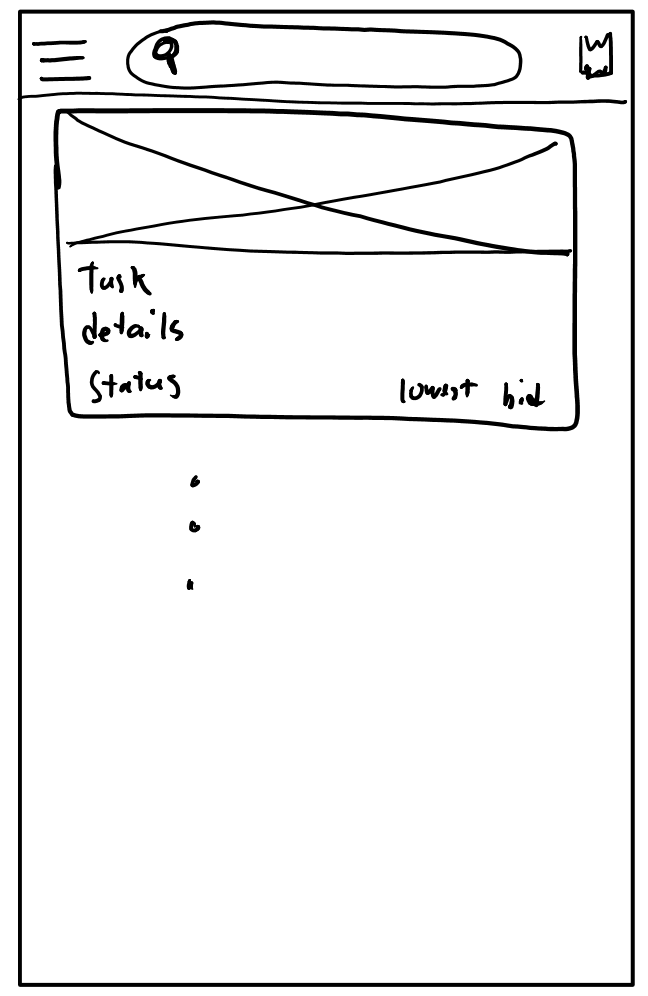 Task
details
Status
lowest bid